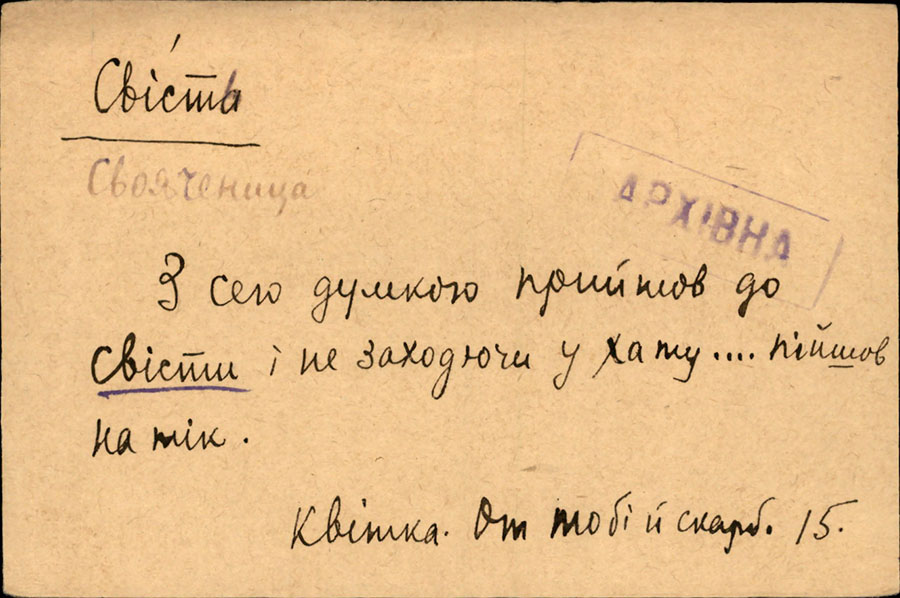 Свість
Своячениця
АРХІВНА
З сею думкою прийшов до
свісти і не заходючи у хату.... пійшов
на тік.
Квітка. От тобі й скарб. 15.